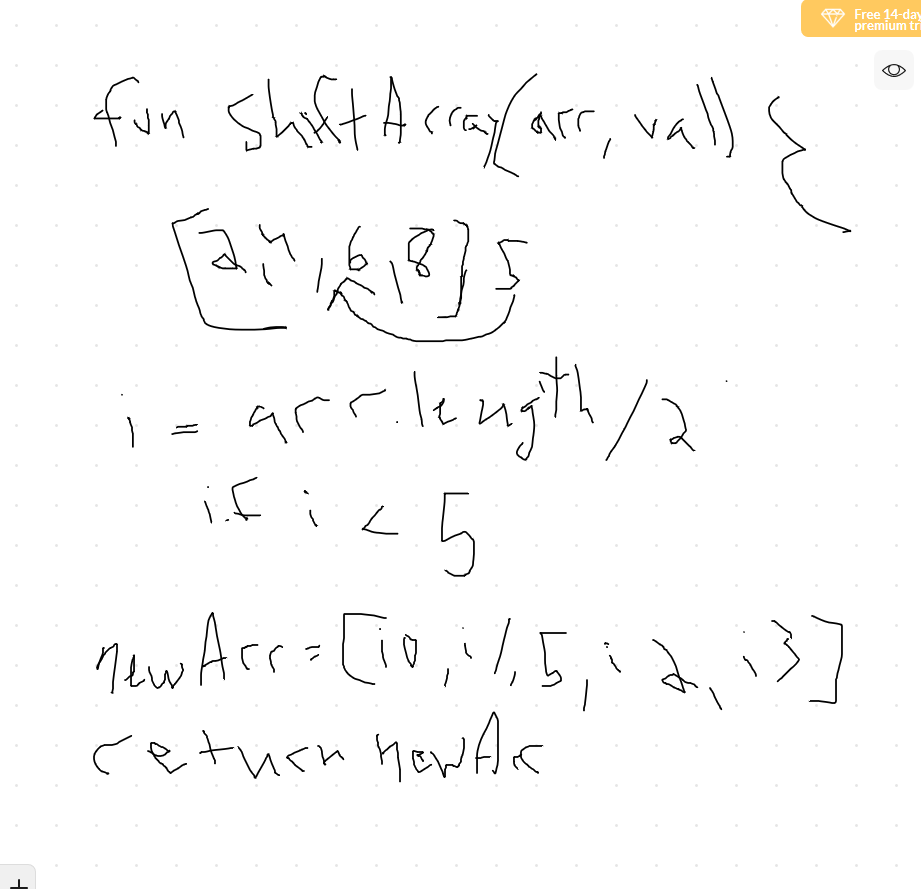 Free 14-day
premium tr
fun ShiftArray(arr, val) {
[2,4,6,8] 5
i = arr.length/2
if i < 5
newArr=[i0,i1,5,i2,i3]
return newArr
+